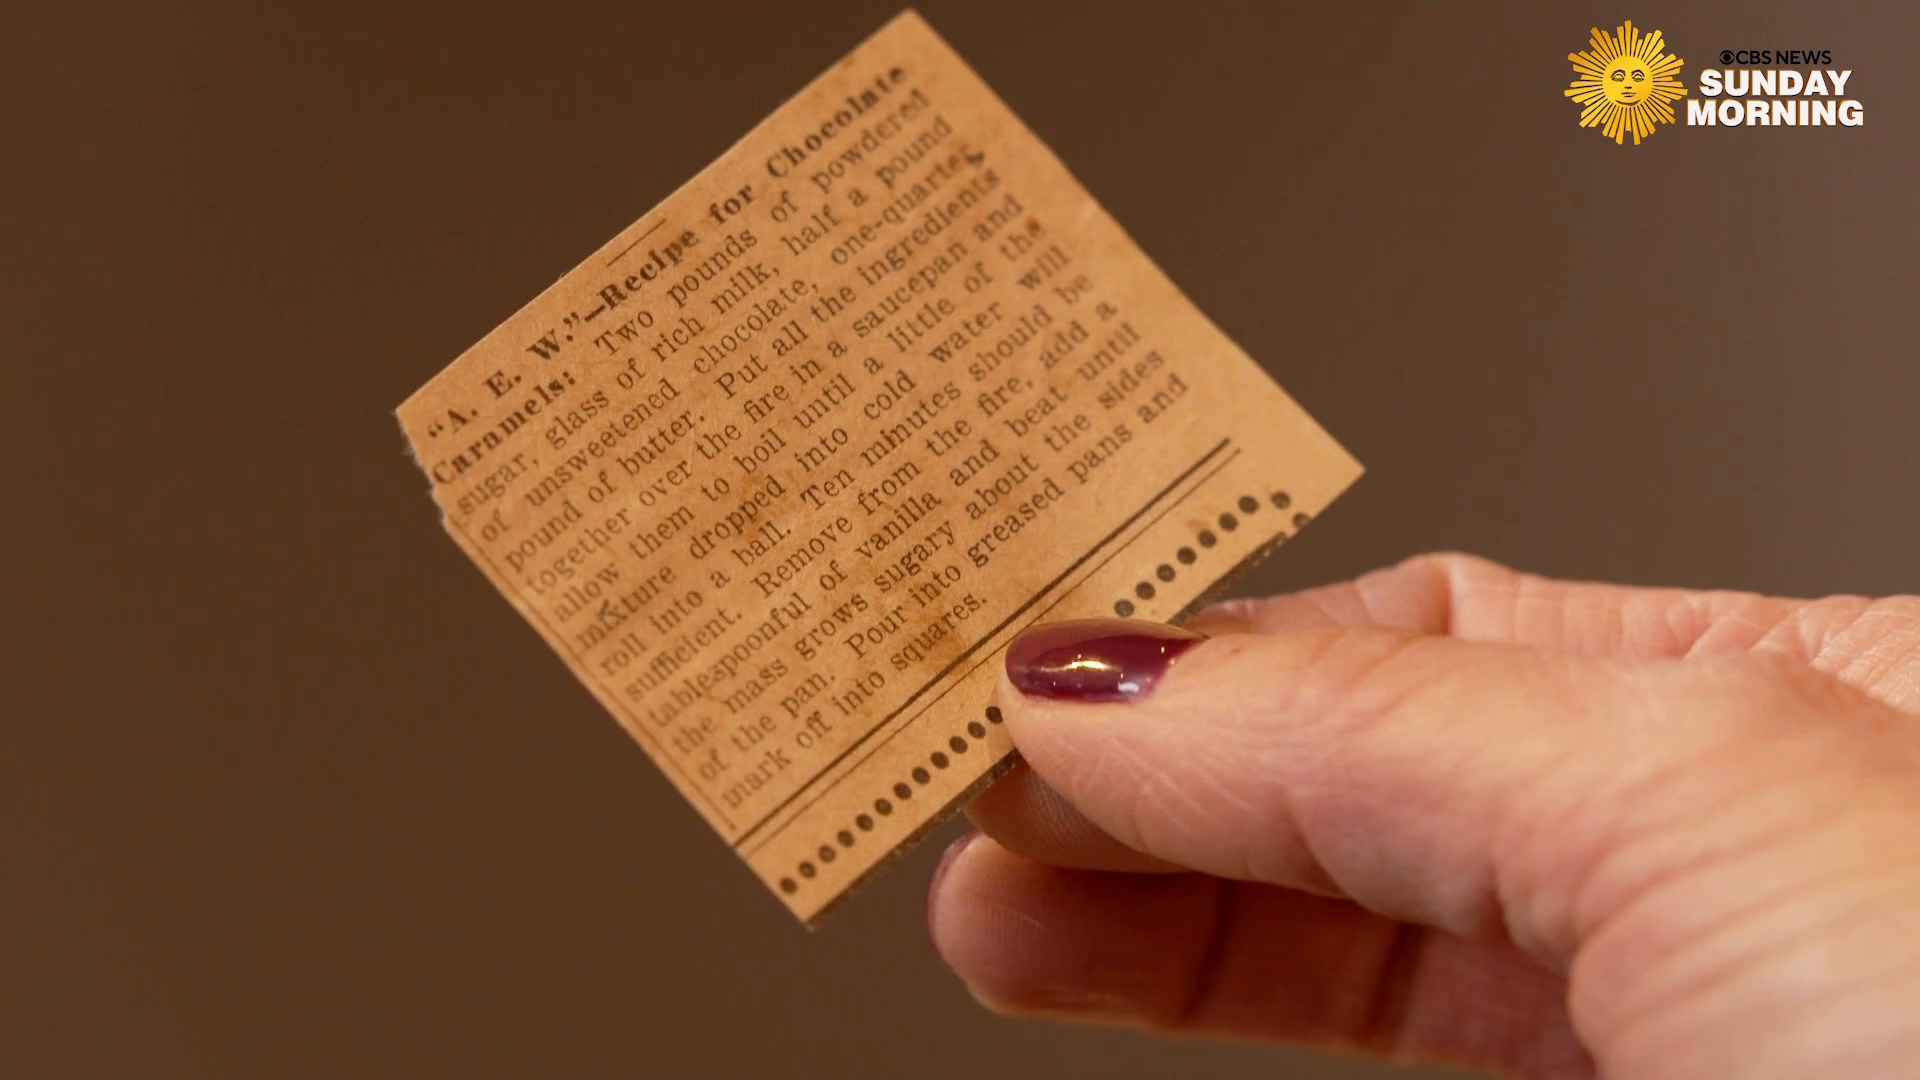 CBS NEWS
SUNDAY
MORNING
“A. E. W.”—Recipe for Chocolate
Caramels: Two pounds of powdered
sugar, glass of rich milk, half a pound
of unsweetened chocolate, one-quarter
pound of butter. Put all the ingredients
together over the fire in a saucepan and
allow them to boil until a little of the
mixture dropped into cold water will
roll into a ball. Ten minutes should be
sufficient. Remove from the fire, add a
tablespoonful of vanilla and beat until
the mass grows sugary about the sides
of the pan. Pour into greased pans and
mark off into squares.